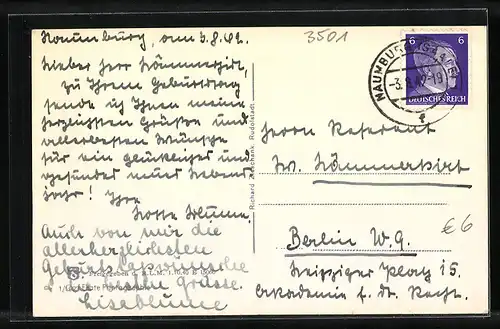 Naumburg, am 3.8.42.
Lieber Herr Kämmerhirt,
zu Ihrem Geburtstag
sende ich Ihnen meine
herzlichsten Grüße und
allerbesten Wünsche
für ein glückliches und
gesundes neues Lebens-
jahr! Ihre
Lotte Blume.
Auch von mir die
allerherzlichsten
Geburtstagswünsche
Grüsse.
3501
NAUMBURG (SAALE)
-3.8.42-19
f
6 6
DEUTSCHES REICH
Richard Zieschank, Rudolstadt
Herrn Referent
W. Kämmerhirt
Berlin W. 9.
Leipziger Platz 15.
Akademie f. dt. Recht.
€6